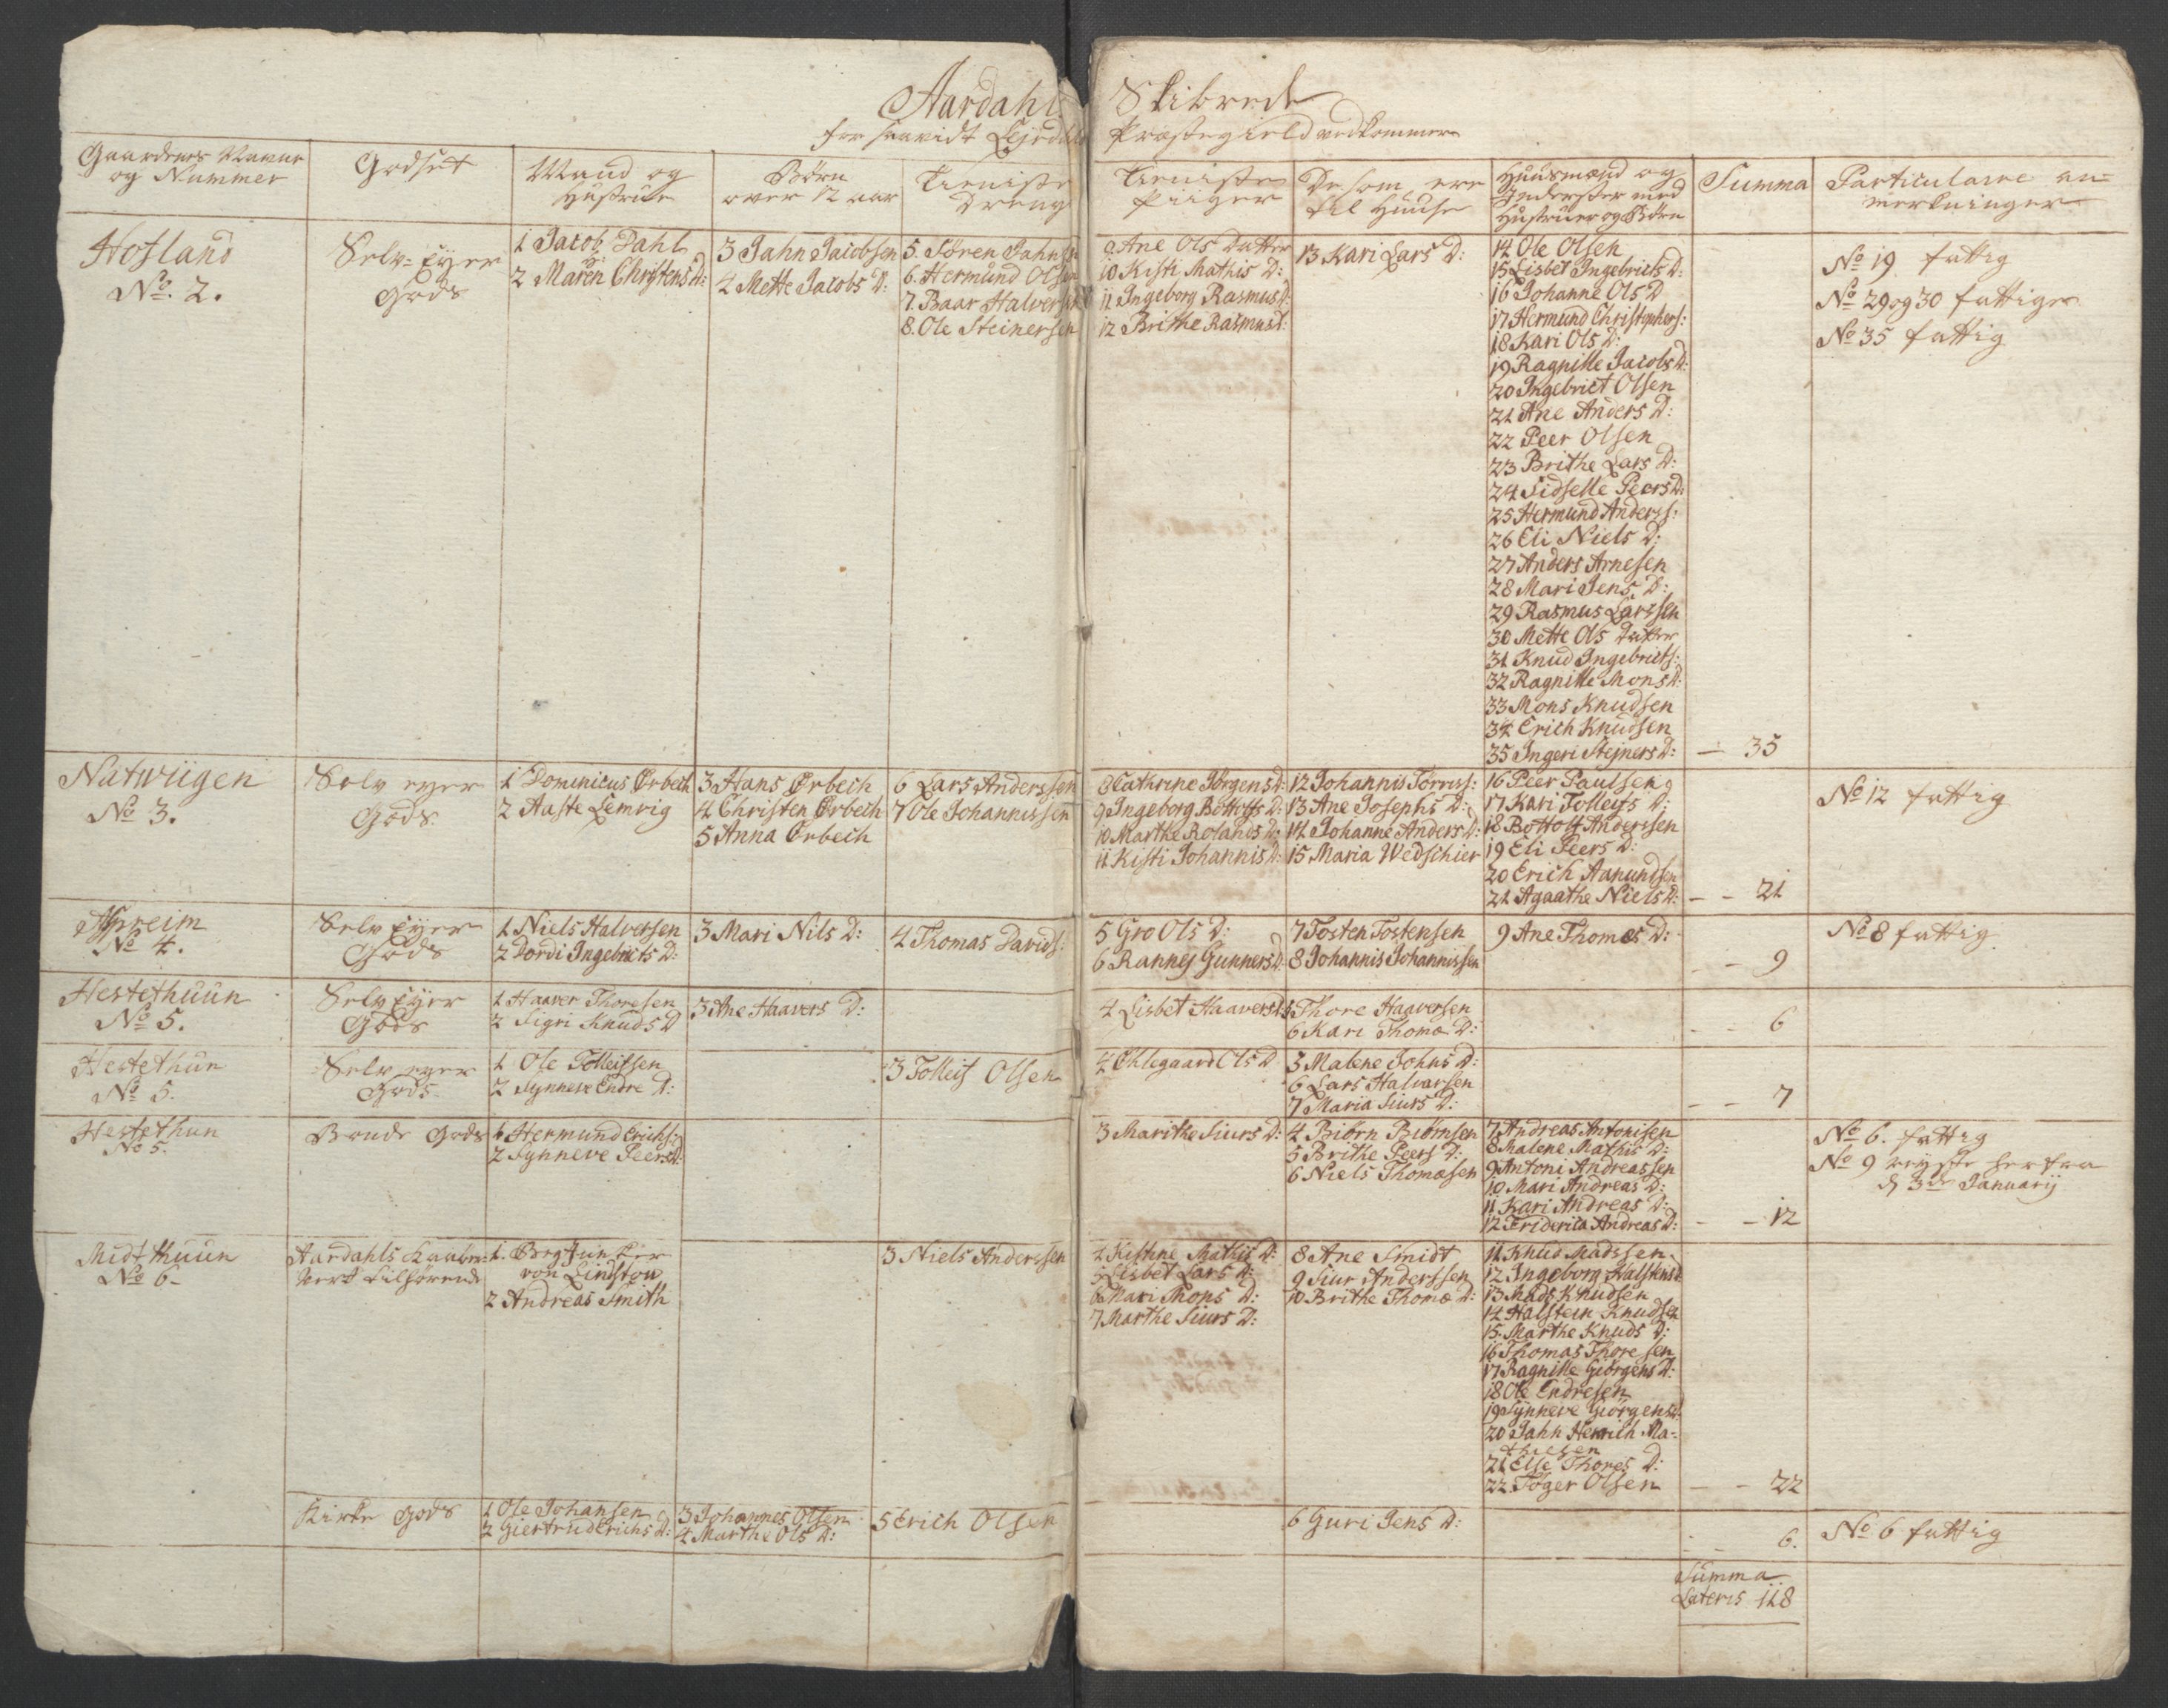 Aardahl Skibrede
for saavidt Lejrdahls Præstegield vedkommer
Gaardenes Navne
og Nummer
Godset
Mand og
Hustrue
Børn
over 12 aar
Tieniste
Dreng
Tieniste
Piiger
De som ere
til Huuse
Huusmænd og
Inderster med
Hustruer og Børn
Summa
Particulaire an=
merkninger
Hofland
No. 2.
Selv=Eyer
Gods
1 Jacob Dahl
2 Maren Christens D:
3 Jahn Jacobsen
4 Mette Jacobs D:
5. Sören Jahnsen
6. Hermund Olsen
7. Baar Halversen
8. Ole Steinersen
9 Ane Ols Datter
10 Kisti Mathis D:
11 Ingeborg Rasmus D:
12 Brithe Rasmus D:
13 Kari Lars D:
14 Ole Olsen
15 Lisbet Ingebricts D:
16 Johanne Ols D
17 Hermund Christophers:
18 Kari Ols D:
19 Ragnille Jacobs D:
20 Ingebrict Olsen
21 Ane Anders D:
22 Peer Olsen
23 Brithe Lars D:
24 Sidselle Peers D:
25 Hermund Anderss:
26 Eli Niels D:
27 Anders Arnesen
28 Mari Jens D:
29 Rasmus Larssen
30 Mette Ols Datter
31 Knud Ingebricts:
32 Ragnille Mons D:
33 Mons Knudsen
34 Erich Knudsen
35 Ingeri Stejners D:
— 35
No 19 fattig
No 29 og 30 fattige
No 35 fattig
Natwiigen
No 3.
Selv eyer
Gods
1 Dominicus Örbech
2 Aaste Lemvig
3 Hans Örbech
4 Christen Örbech
5 Anna Örbech
6 Lars Anderssen
7 Ole Johannissen
8 Cathrine Jörgens D:
9 Ingeborg Bottolfs D:
10 Marthe Rolands D:
11 Kisti Johannis D:
12 Johannis Torriss:
13 Ane Josephs D:
14 Johanne Anders D:
15 Maria Wedschier
16 Peer Paulsen
17 Kari Tolleifs D:
18 Bottolf Anderssen
19 Eli Peers D:
20 Erich Aamundsen
21 Agaathe Niels D:
- - 21
No 12 fattig
No 4.
Selv Eyer
Gods
1 Niels Halversen
2 Dordi Ingebricts D:
3 Mari Nils D:
4 Thomas Davids:
5 Gro Ols D:
6 Rannej Gunners D:
7 Tosten Tostensen
8 Johannis Johannissen
9 Ane Thomes D:
- - 9
No 8 fattig
Hestethuun
No 5.
Selv Eyer
Gods
1 Haaver Thoresen
2 Sigri Knuds D
3 Ane Haavers D:
4 Lisbet Haavers D:
5 Thore Haaversen
6 Kari Thomæ D:
- - 6
Hestethun
No 5.
Selv eyer
Gods
1 Ole Tolleifsen
2 Synneve Endre D:
3 Tolleif Olsen
4 Ehlegaard Ols D
3 Malene Johns D:
6 Lars Halvarsen
7 Maria Siurs D:
- - 7
Hestethun
No 5.
Bonde Gods
1 Hermund Erichs:
2 Synneve Peers D:
3 Marithe Siurs D:
4 Biörn Biörnsen
5 Brithe Peers D:
6 Niels Thomæsen
7 Andreas Antonisen
8 Malene Mathis D:
9 Antoni Andreassen
10 Mari Andreas D:
11 Kari Andreas D:
12 Friderica Andreas D:
- - 12
No 6. fattig
No 9 reyste herfra
d 3de Januarij
Midtthuun
No 6-
Aardahls Kaaber=
Verk tilhörende
1. Berg Junker
von Lindstow
2 Andreas Smith
3 Niels Anderssen
4 Kistine Mathis D:
5 Lisbet Lars D:
6 Mari Mons D:
7 Marthe Siurs D:
8 Ane Smidt
9 Siur Anderssen
10 Brithe Thomæ D:
11 Knud Madssen
12 Ingeborg Halstens D
13 Mads Knudsen
14 Halstein Knudsen
15. Marthe Knuds D:
16 Thomas Thoresen
17 Ragnille Giörgens D:
18 Ole Endresen
19 Synneve Giörgens D:
20 Jahn Henrich Ma-
thiesen
21 Else Thores D:
22 Töger Olsen
- - 22
Kirke Gods
1 Ole Johansen
2 Giertrud Erichs D:
3 Johannes Olsen
4 Marthe Ols D:
5 Erich Olsen
6 Guri Jens D:
- - 6.
No 6 fattig
Summa
Lateris 118